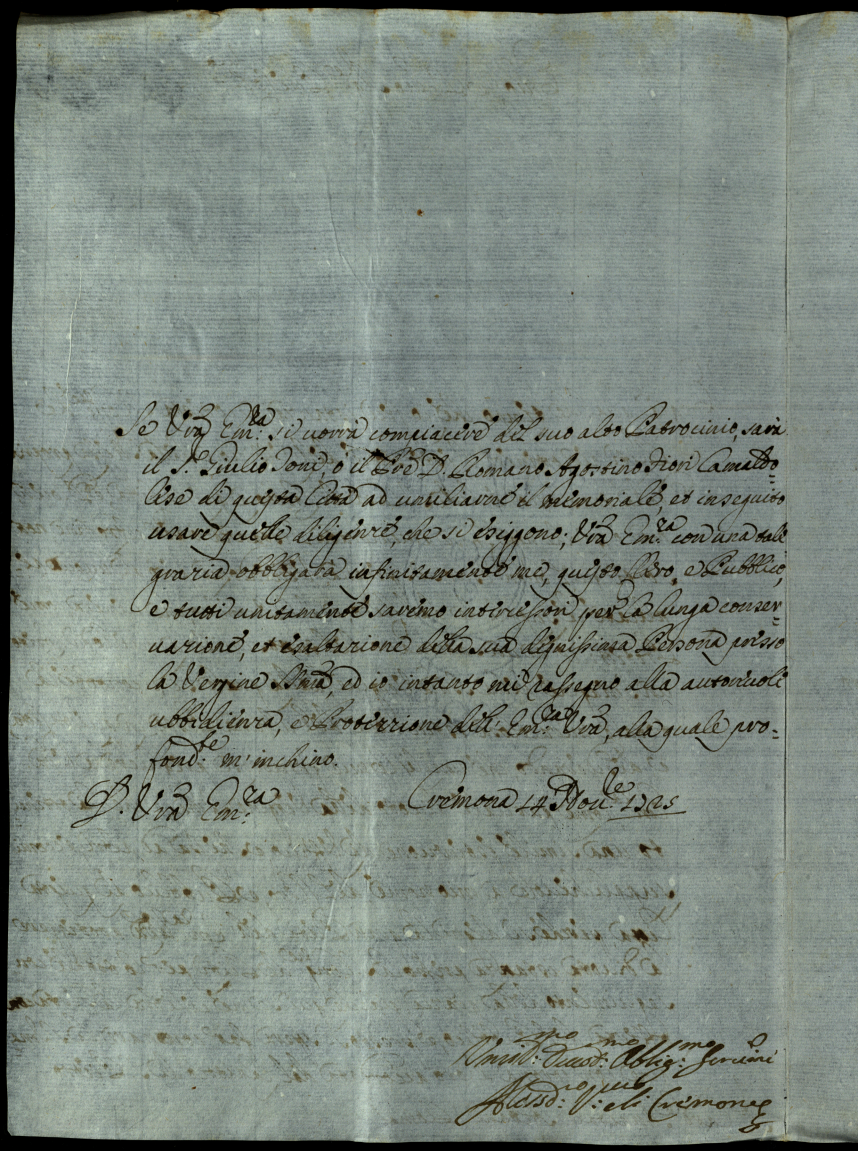 Se Vrã Em.za si vorrà compiacere del suo alto Patrocinio, sarà
il S.r Giulio Toni, o il Prẽ D. Romano Agostino Fiori Camaldo=
lese di questa Città ad umiliarne il memoriale, et in seguito
usare quelle diligenze, che si esiggono; Vrã Em.za con una tale
grazia obbligarà infinitamente me, questo Clero, e Pubblico,
e tutti unitamente saremo intercessori per la lunga conser=
vazione, et esaltazione della sua degnissima Persona presso
la Vergine Smã, ed io intanto mi rassegno alla autorevole
ubbidienza, e Protezzione dell' Em.za Vrã, alla quale pro=
fond.te m' inchino.
D. Vrã Em.za
Cremona 14 Nov.re 1725
Umil.mo Devot.mo Oblig.mo Servitore
Alessd.ro V.vo di Cremona